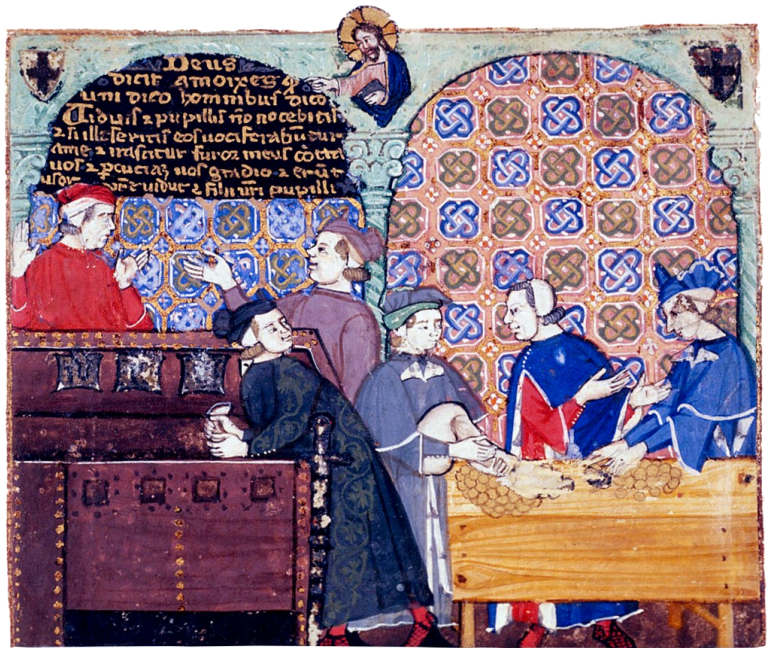 Deus
dicit amoixes q̄
uni dico hominibus dico
Tiduis ⁊ pupillis nō nocebitis
⁊ si illeseritis eos uociferabūtur
ame ⁊ irascitur furor meus cōtra
uos ⁊ p̄cuciaz uos gladio ⁊ erūt
uidue ⁊ filii ur̄i pupilli